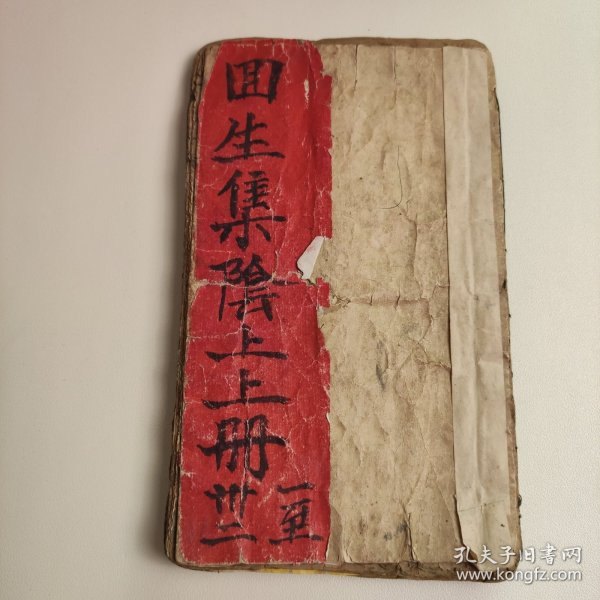 囬生集陰上上册
一至
卅二
孔夫子旧書网
www.kongfz.com